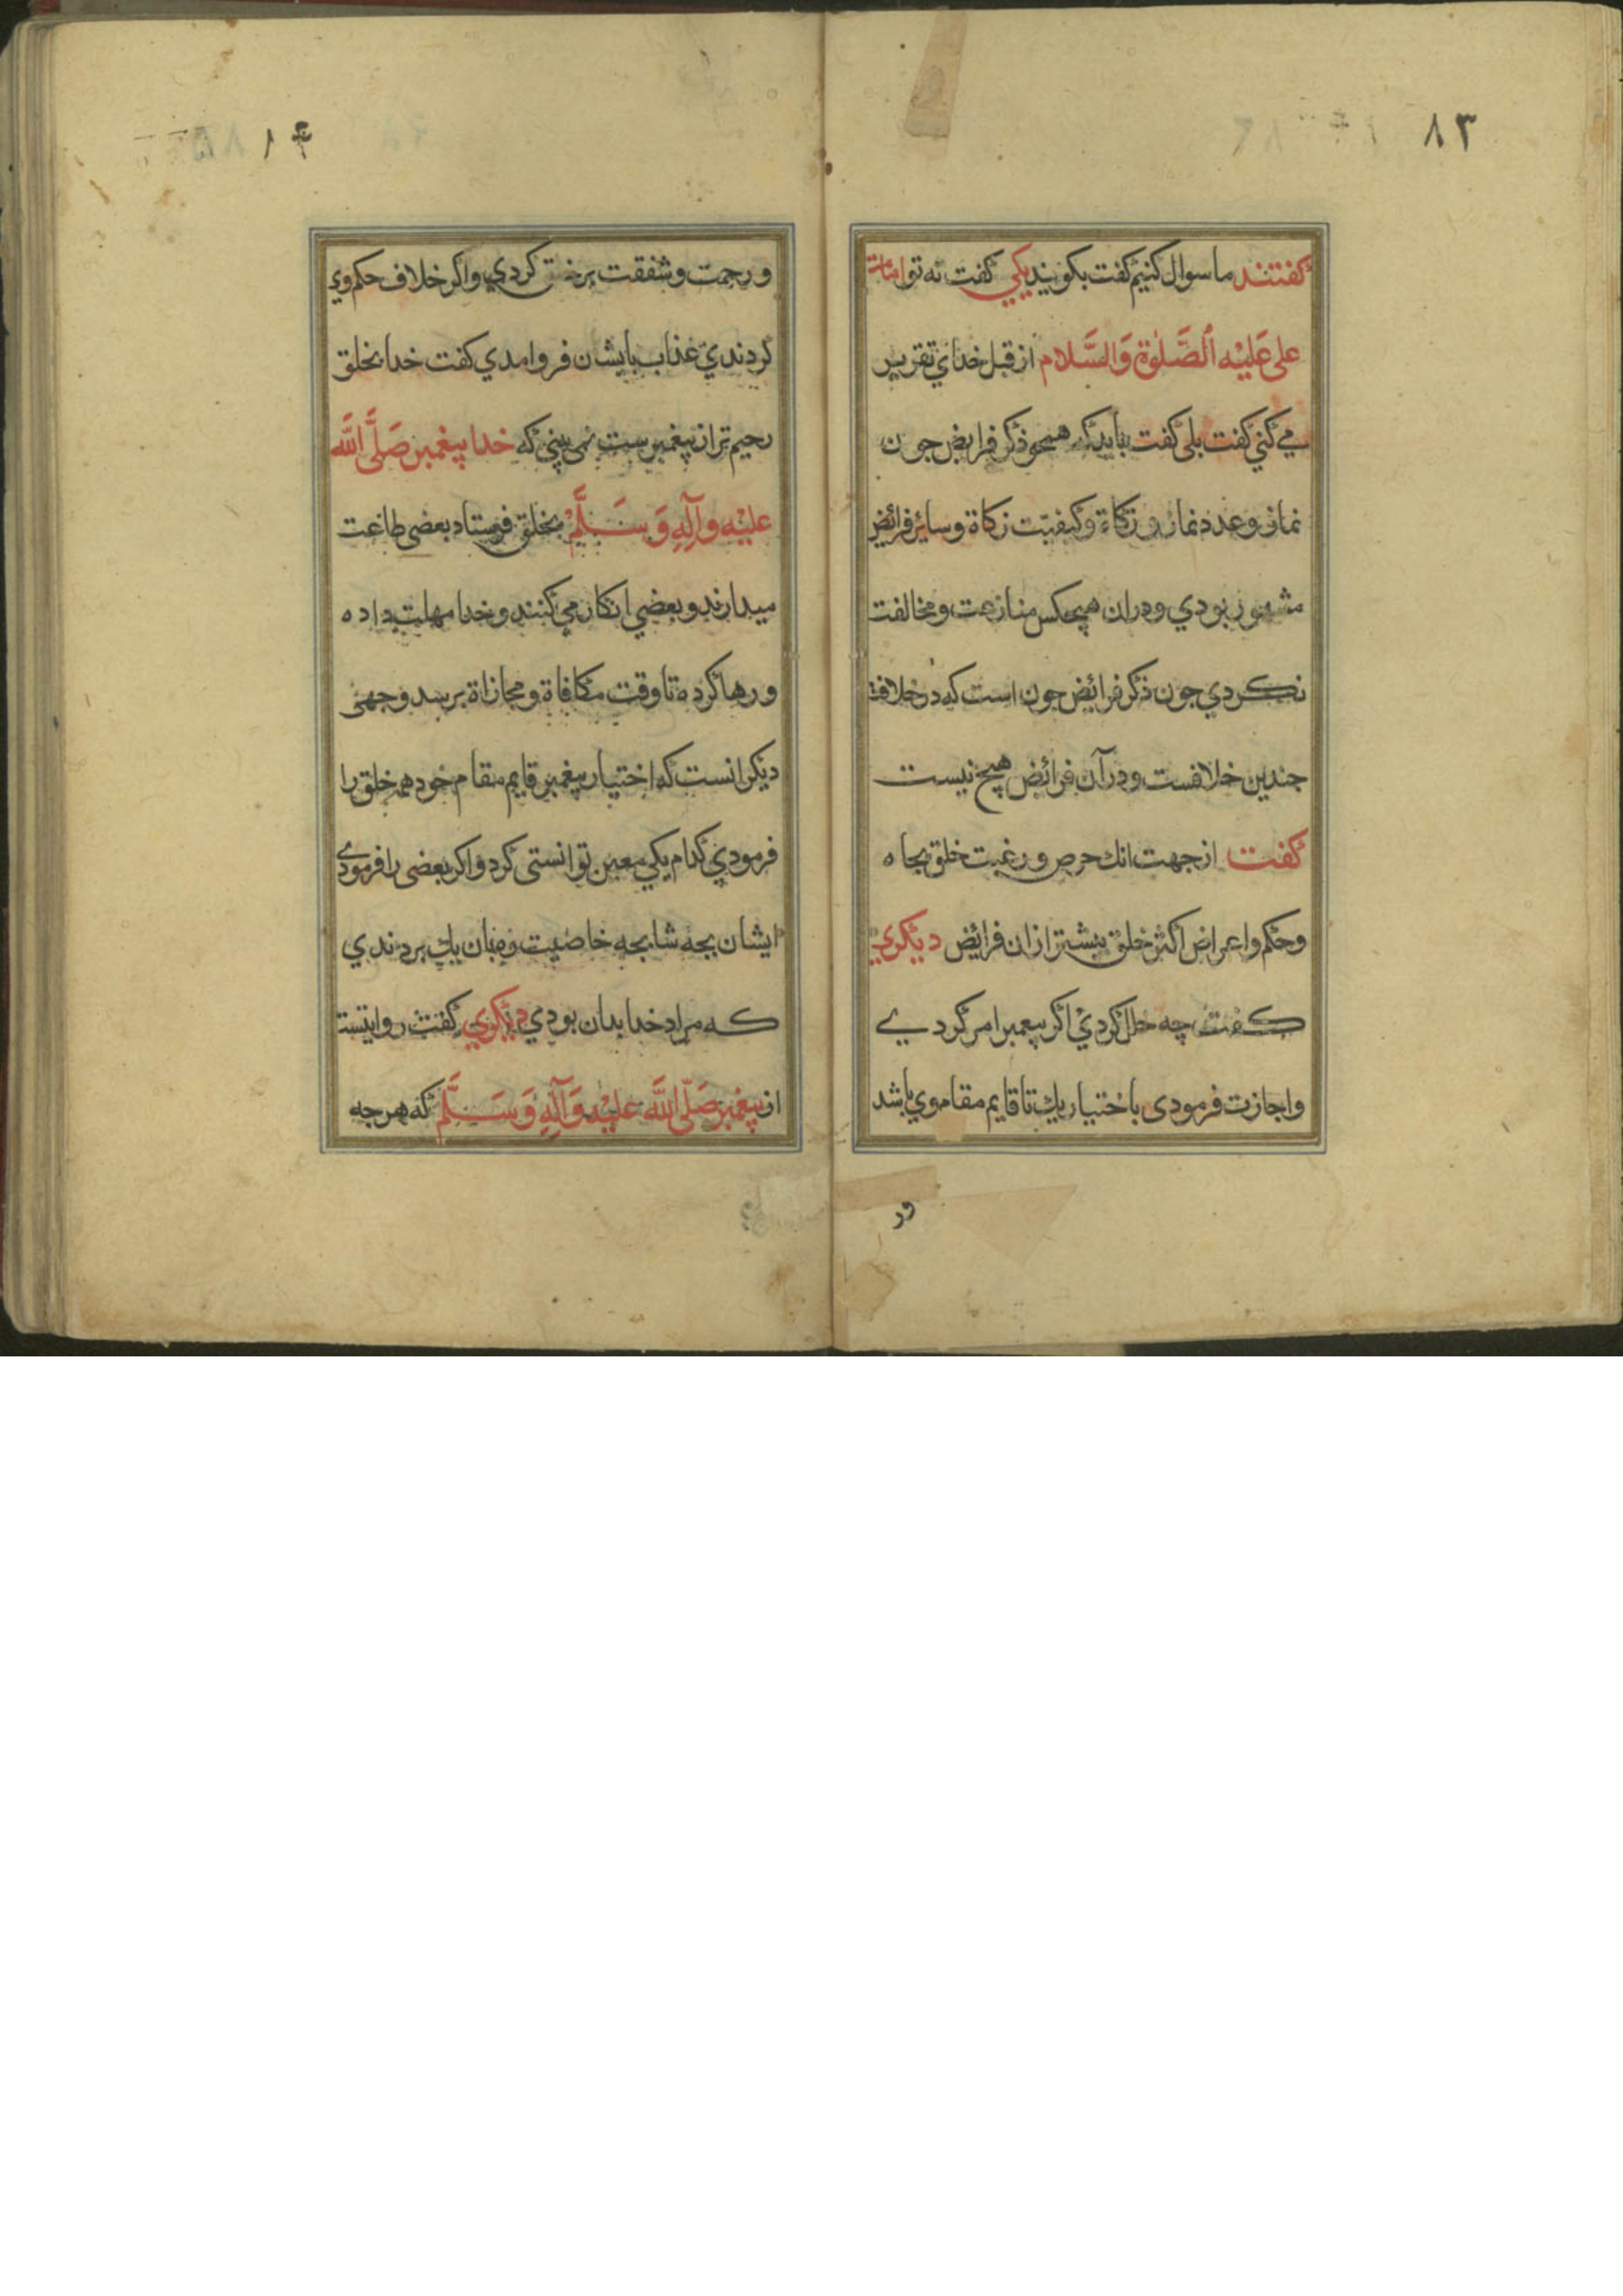 ٨٣
گفتند ما سوال کنیم گفت بکویند یکی گفت نه تو امامت
علی عَلَیْه الصَّلٰوة وَالسَّلام از قبل خدای تقریر
می کنی گفت بلی گفت بباید که همجو ذکر فرایض جون
نماز و عدد نماز و زکاة و کیفیّت زکاة و سایر فرائض
مشهور بودی و دران هیچکس منازعت و مخالفت
نکردی جون ذکر فرائض جون است که در خلافت
جندین خلافست و در آن فرائض هیچ نیست
گفت از جهت انك حرص و رغبت خلق بجاه
و حکم و اعراض اکثر خلق بیشتر از ان فرائض دیگری
گفت چه خلل کردی اگر پیغمبر امر کردی
و اجازت فرمودی باختیار یك تا قایم مقام وی باشد
ور
٩١
و رحمت و شفقت بر خلق کردی و اگر خلاف حکم وی
کردندی عذاب بایشان فرو امدی کفت خدا بخلق
رحیم تر از پیغمبرست نمی بینی که خدا پیغمبر صَلَّی اللَّه
علیْه وآلِهِ وَ سَلَّمْ بخلق فرستاد بعضی طاعت
میدارند و بعضی انکار می کنند و خدا مهلت داده
و رها کرده تا وقت مکافاة و مجازاة برسد و جهتی
دیکر انست که اختیار پیغمبر قایم مقام خود همه خلق را
فرمودی کدام یکی معین توانستی کرد و اکر بعضی را فرمودی
ایشان بجه شابجه خاصیت زمان یك بردندی
که مراد خدا بدان بودی دیگری گفت روایتست
از پیغمبر صَلَّی اللَّه علیْه وَآلِهِ وَ سَلَّمْ که هر جه